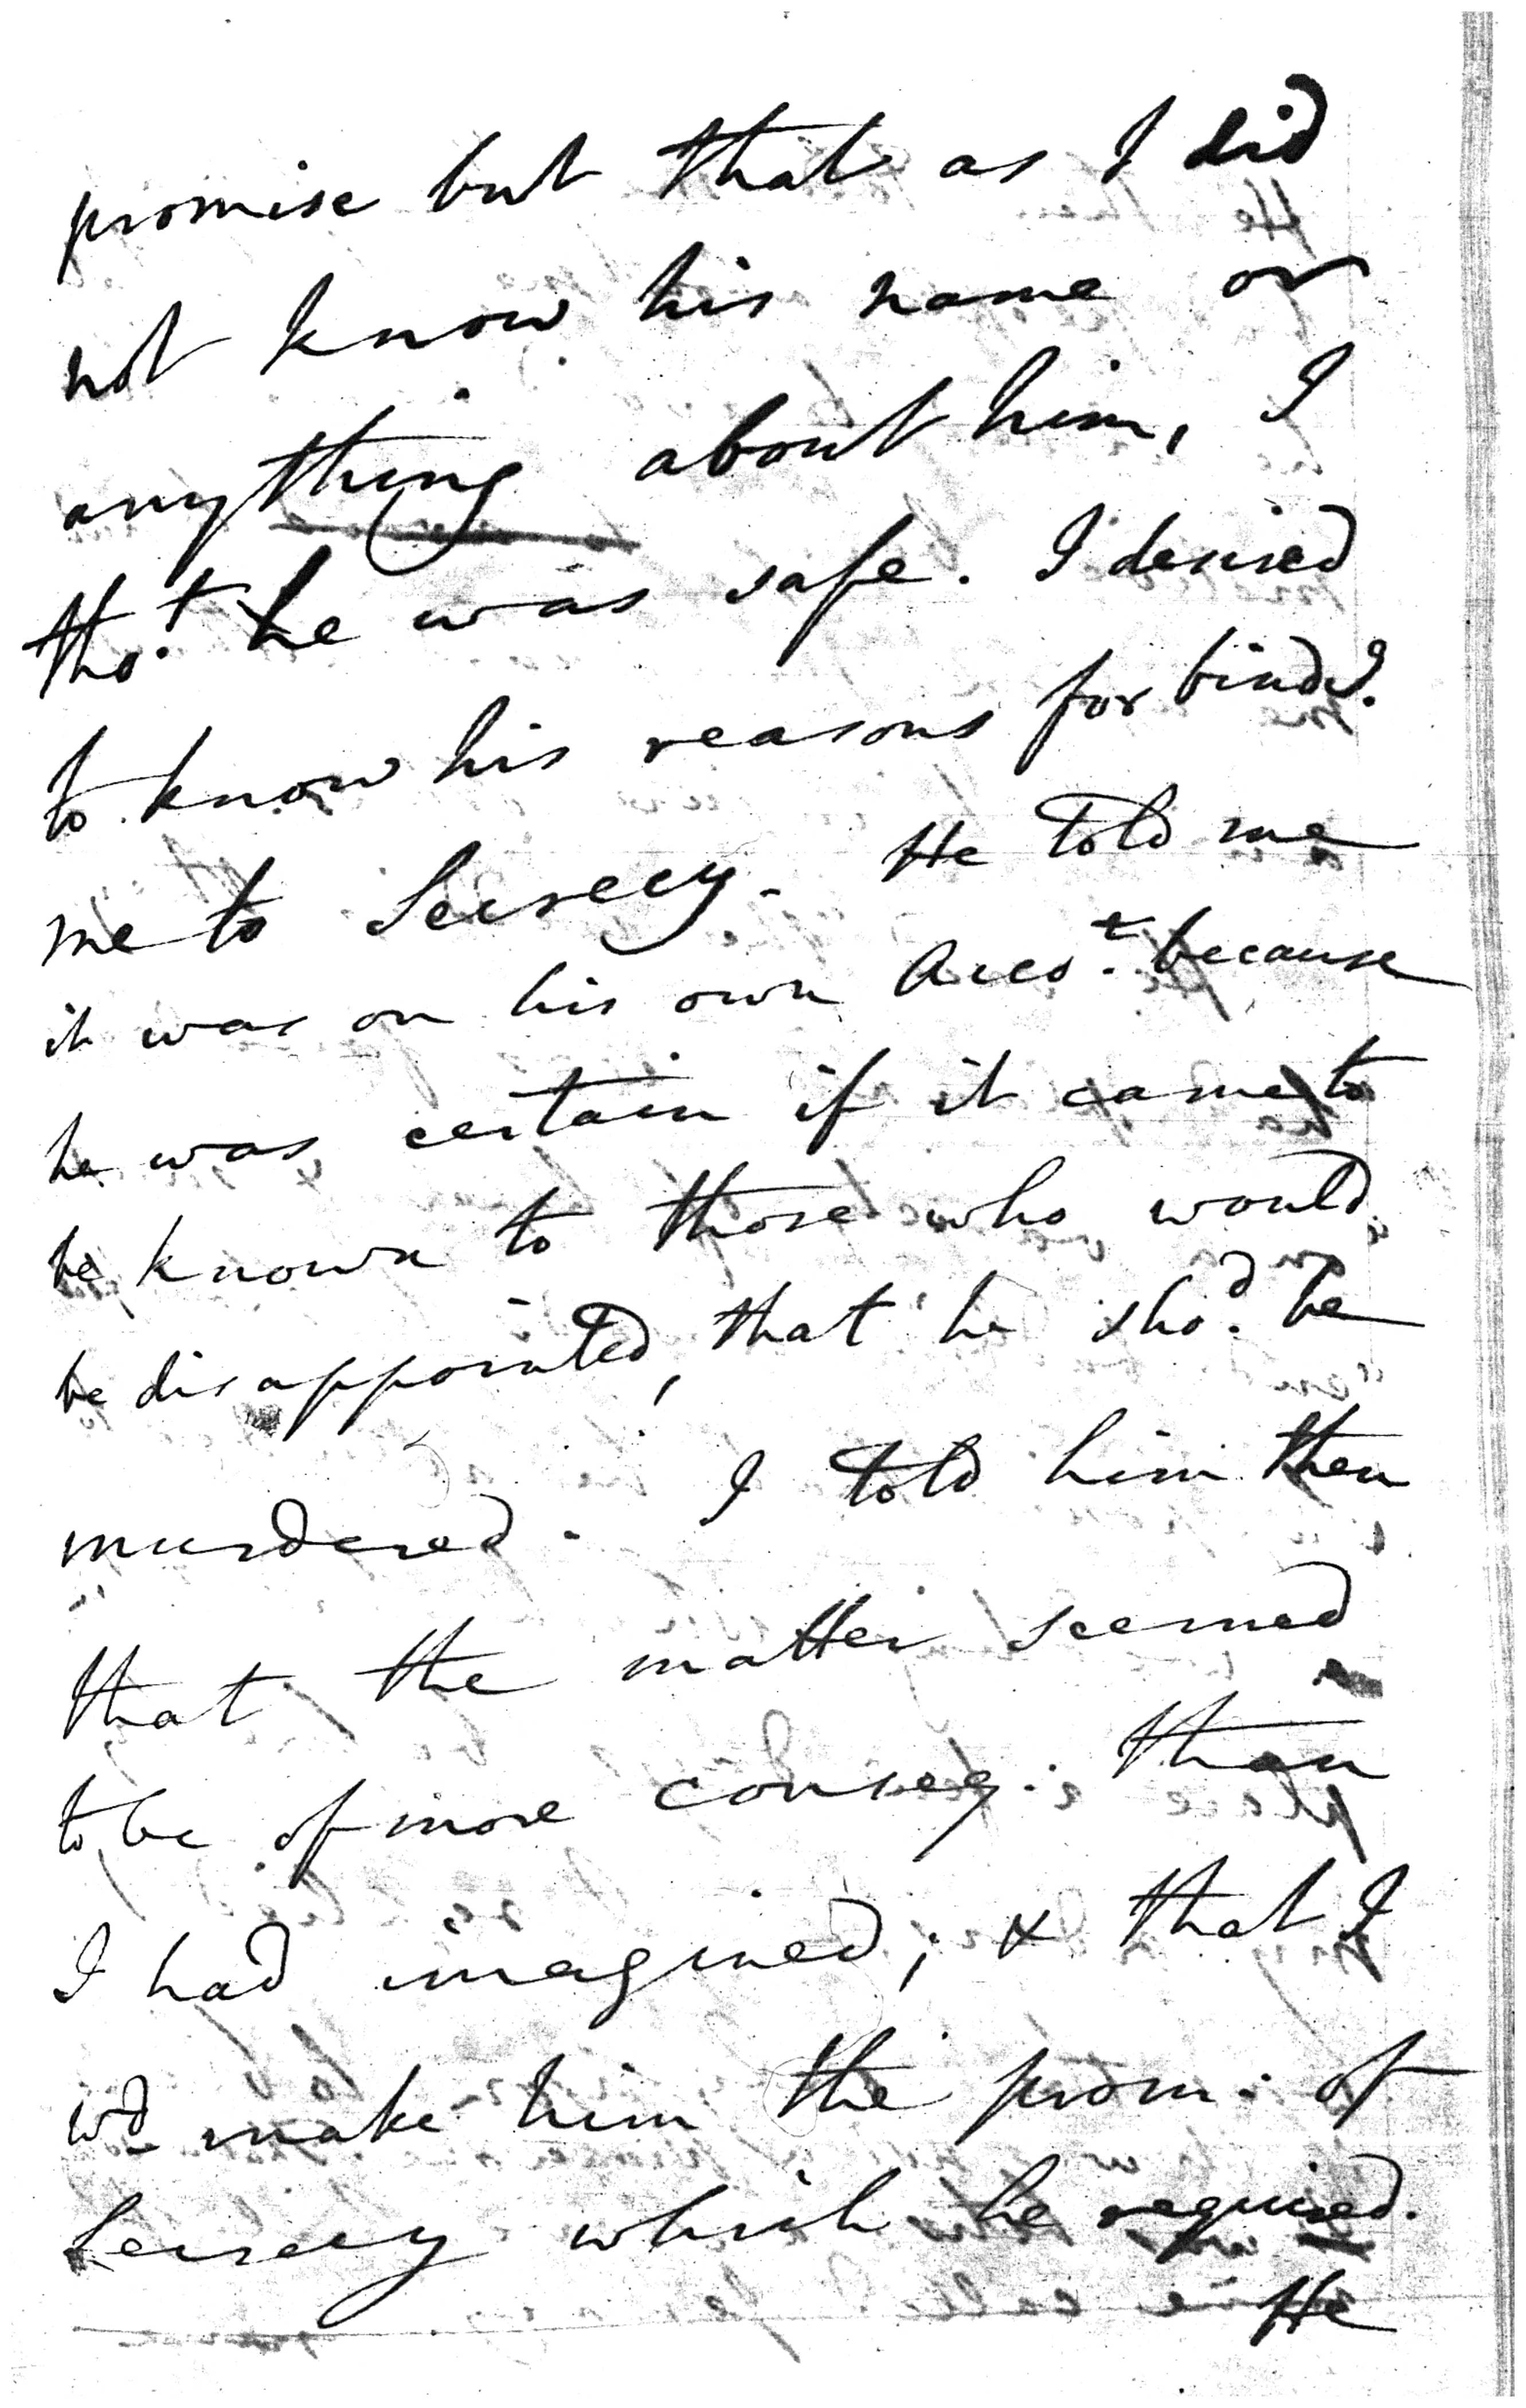 promise but that as I did
not know his name or
anything about him, I
tho.t he was safe. I desired
to know his reasons for bindg.
me to Secrecy. He told me
it was on his own Acco.t because
he was certain if it came to
be known to those who would
be disappointed, that he sho.d be
murdered. I told him then
that the matter seemed
to be of more conseq. than
I had imagined; & that I
wd make him the prom. of
Secrecy which he required.
He